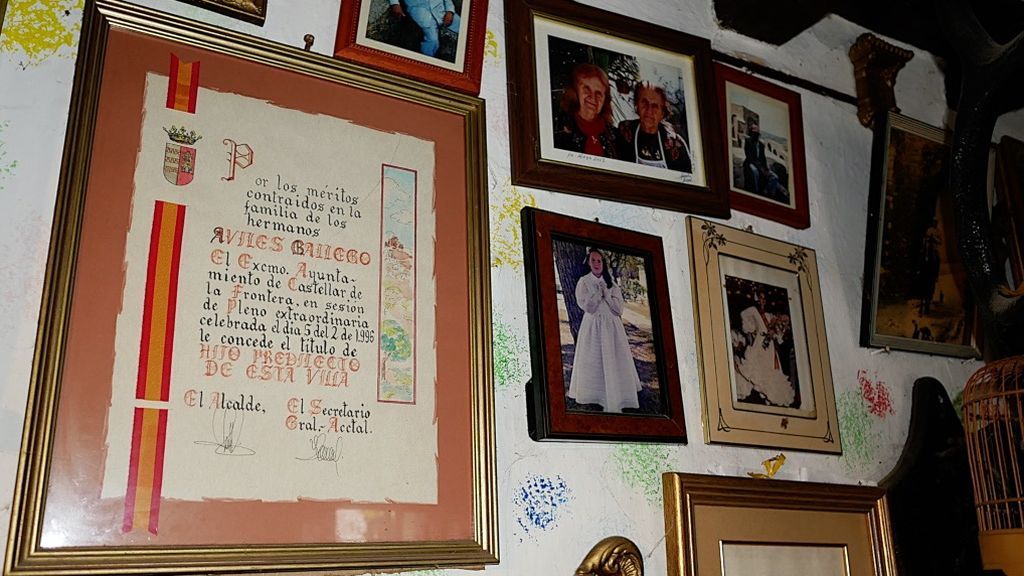 Por los meritos
contraidos en la
familia de los
hermanos
AVILES BALLERO
El Excmo. Ayunta-
miento de Castellar de
la Frontera, en sesión
de Pleno extraordinaria
celebrada el dia 5 del 2 de 1.996
le concede el titulo de
HIJO PREDILECTO
DE ESTA VILLA
El Alcalde, El Secretario
Gral.- Acctal.